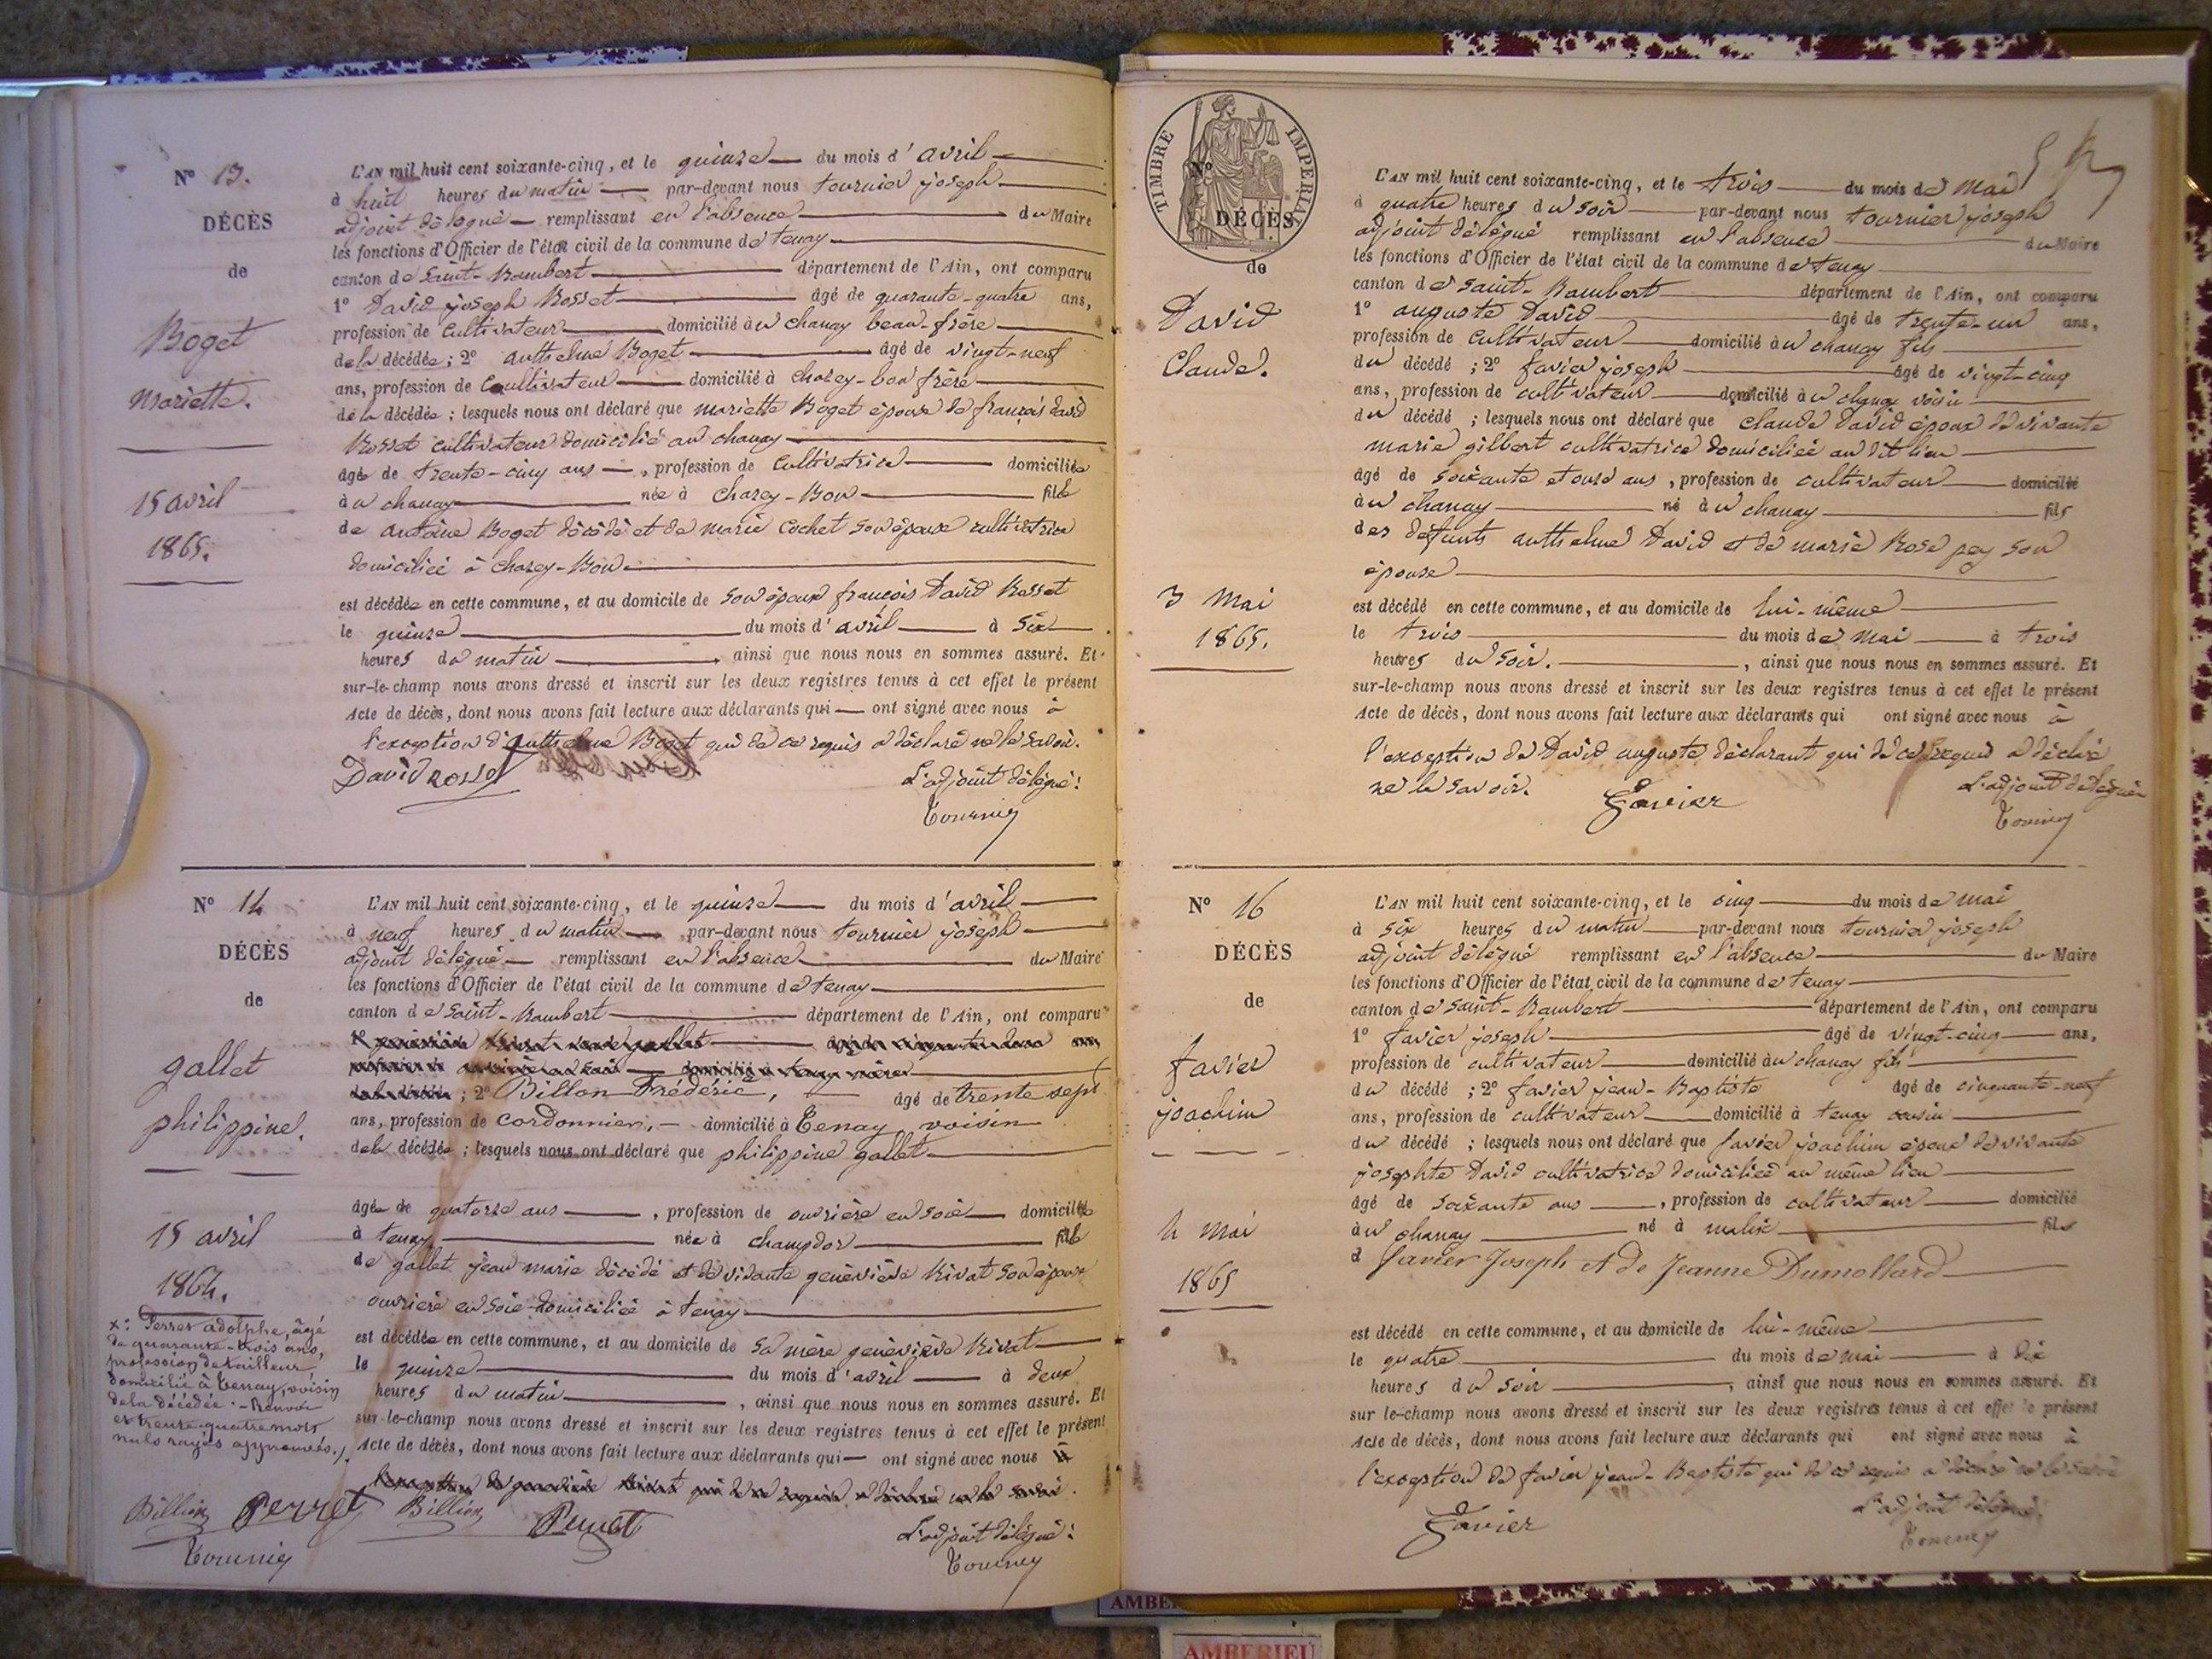 N° 13.
DÉCÈS
de
Boget
Mariette.
15 avril
1865.
L'AN mil huit cent soixante-cinq, et le quinze du mois d'avril
à huit heures du matin par-devant nous tournier joseph
adjoint délégué remplissant en l'absence du Maire
les fonctions d'Officier de l'état civil de la commune de tenay
canton de Saint-Rambert département de l'Ain, ont comparu
1° David joseph Rosset âgé de quarante-quatre ans,
profession de cultivateur domicilié à u chanay beau-frère
de la décédée; 2° anthelme Boget âgé de vingt-neuf
ans, profession de Cultivateur domicilié à Chazey-bon frère
de la décédée; lesquels nous ont déclaré que mariette Boget épouse de françois david
Rosset cultivateur domicilié au chanay
âgée de trente-cinq ans, profession de Cultivatrice domiciliée
à u chanay née à Chazey-Bon fille
de antoine Boget décédé et de marie Cochet son épouse cultivatrice
domiciliée à Chazey-Bon
est décédée en cette commune, et au domicile de son époux françois David Rosset
le quinze du mois d'avril à six
heures du matin, ainsi que nous nous en sommes assuré. Et
sur-le-champ nous avons dressé et inscrit sur les deux registres tenus à cet effet le présent
Acte de décès, dont nous avons fait lecture aux déclarants qui ont signé avec nous à
l'exception d'anthelme Boget qui de ce requis a déclaré ne le savoir.
David Rosset
L'adjoint délégué:
Tournier
N° 14
DÉCÈS
de
gallet
philippine.
15 avril
L'AN mil huit cent soixante-cinq, et le quinze du mois d'avril
à neuf heures du matin par-devant nous tournier joseph
adjoint délégué remplissant en l'absence du Maire
les fonctions d'Officier de l'état civil de la commune de tenay
canton de Saint-Rambert département de l'Ain, ont comparu
; 2° Billon Frédéric, âgé de trente sept
ans, profession de cordonnier, domicilié à Tenay voisin
de la décédée; lesquels nous ont déclaré que philippine gallet
âgée de quatorze ans, profession de ouvrière en soie domiciliée
à tenay née à champdor fille
de gallet jean marie décédé et de vivante geneviève Rivat son épouse
ouvrière en soie domiciliée à tenay
est décédée en cette commune, et au domicile de sa mère geneviève Rivat
le quinze du mois d'avril à deux
heures du matin, ainsi que nous nous en sommes assuré. Et
sur-le-champ nous avons dressé et inscrit sur les deux registres tenus à cet effet le présent
Acte de décès, dont nous avons fait lecture aux déclarants qui ont signé avec nous à
l'exception de geneviève Rivat qui de ce requis a déclaré ne le savoir.
x: Perret adolphe, âgé
de quarante-trois ans,
profession de tailleur
domicilié à Tenay, voisin
de la décédée. - Renvoi
et trente-quatre mots
nuls rayés approuvés.
Billion Perret Billion Perret
Tournier
L'adjoint délégué:
Tournier
TIMBRE IMPERIAL
N°
DÉCÈS
de
David
Claude.
3 Mai
1865.
L'AN mil huit cent soixante-cinq, et le trois du mois de mai
à quatre heures du soir par-devant nous tournier joseph
adjoint délégué remplissant en l'absence du Maire
les fonctions d'Officier de l'état civil de la commune de tenay
canton de Saint-Rambert département de l'Ain, ont comparu
1° auguste David âgé de trente-un ans,
profession de cultivateur domicilié à u chanay fils
du décédé; 2° favier joseph âgé de vingt-cinq
ans, profession de cultivateur domicilié à u chanay voisin
du décédé; lesquels nous ont déclaré que claude david époux de vivante
marie gilbert cultivatrice domiciliée au dit lieu
âgé de soixante et onze ans, profession de cultivateur domicilié
à u chanay né à u chanay fils
des défunts anthelme David et de marie Rose pey son
épouse
est décédé en cette commune, et au domicile de lui-même
le trois du mois de mai à trois
heures du soir., ainsi que nous nous en sommes assuré. Et
sur-le-champ nous avons dressé et inscrit sur les deux registres tenus à cet effet le présent
Acte de décès, dont nous avons fait lecture aux déclarants qui ont signé avec nous à
l'exception de David auguste déclarant qui de ce requis a déclaré
ne le savoir.
Favier
L'adjoint délégué
Tournier
N° 16
DÉCÈS
de
favier
joachim
4 mai
1865
L'AN mil huit cent soixante-cinq, et le cinq du mois de mai
à six heures du matin par-devant nous tournier joseph
adjoint délégué remplissant en l'absence du Maire
les fonctions d'Officier de l'état civil de la commune de tenay
canton de Saint-Rambert département de l'Ain, ont comparu
1° favier joseph âgé de vingt-cinq ans,
profession de cultivateur domicilié à u chanay fils
du décédé; 2° favier jean-Baptiste âgé de cinquante-neuf
ans, profession de cultivateur domicilié à tenay cousin
du décédé; lesquels nous ont déclaré que favier joachim époux de vivante
josephte David cultivatrice domiciliée au même lieu
âgé de soixante ans, profession de cultivateur domicilié
à u chanay né à malix fils
d favier Joseph et de Jeanne Dumollard
est décédé en cette commune, et au domicile de lui-même
le quatre du mois de mai à dix
heures du soir, ainsi que nous nous en sommes assuré. Et
sur le-champ nous avons dressé et inscrit sur les deux registres tenus à cet effet le présent
Acte de décès, dont nous avons fait lecture aux déclarants qui ont signé avec nous à
l'exception de favier jean-Baptiste qui de ce requis a déclaré ne le savoir
Favier
L'adjoint délégué.
Tournier
AMBERIEU